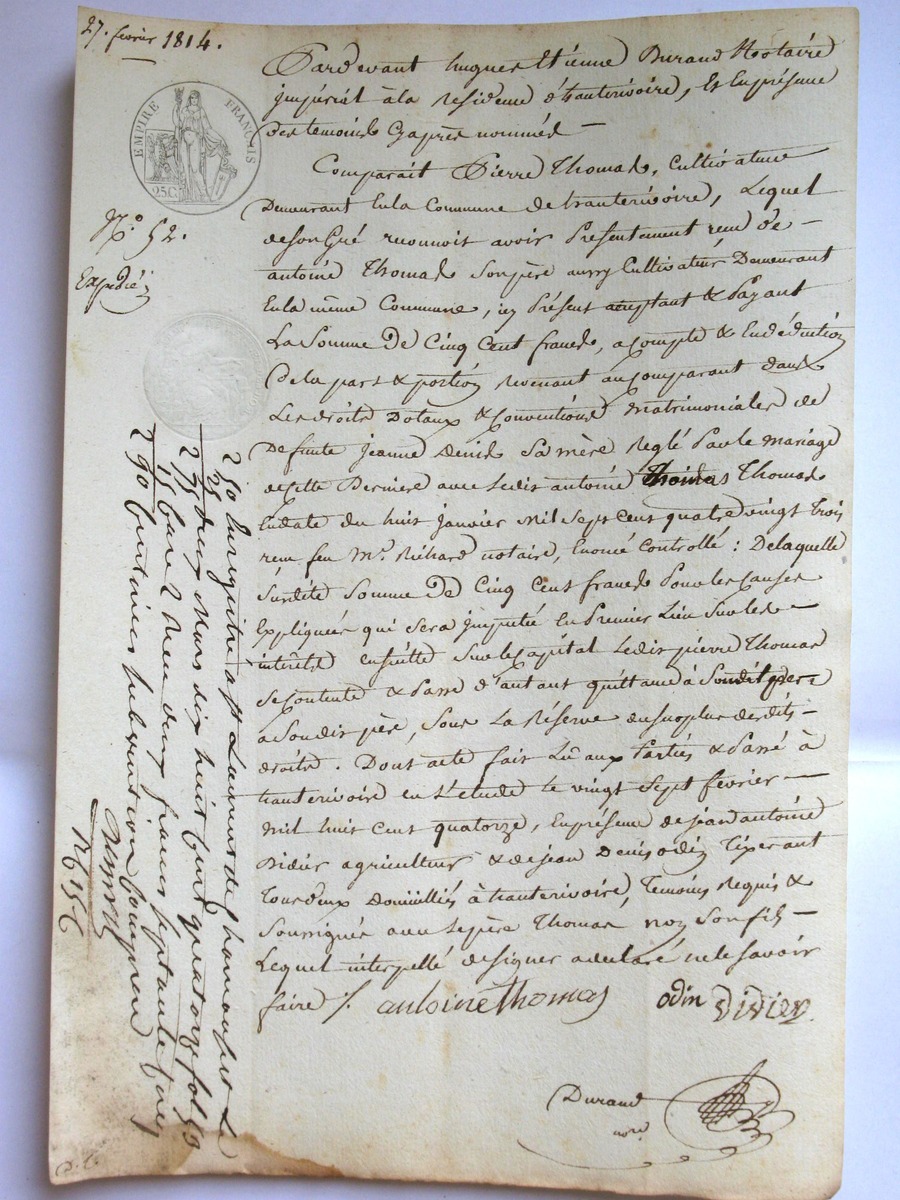 27. fevrier 1814.
EMPIRE FRANÇAIS
25C.
N.º 52.
Expedié
Pardevant hugues Etienne Durand Notaire
impérial à la residence d'hauterivoire, & En présence
des temoins Cy après nommés —
Comparait Pierre Thomas, Cultivateur
Demeurant En la Commune de hauterivoire, Lequel
de son Gré reconnoit avoir Présentament reçu de —
antoine Thomas Son père aussy Cultivateur Demeurant
En la même Commune, icy Présent acceptant & Payant
La Somme De Cinq Cent francs, acompte & En déduction
De la part & portion revenant au comparant dans
Les droits Dotaux & Conventions Matrimoniales de
Defunte jeanne Denis Sa mère Reglé Par le Mariage
de Cette Derniere avec Ledit antoine Thomas Thomas
En date du huit janvier Mil Sept Cent quatre vingt trois
reçu feu M.e Richard notaire, Enoncé Controllé : De laquelle
Surdite Somme De Cinq Cent francs Pour les Causes
Expliquées qui Sera imputée En Premier Lieu Sur les —
intérêts ensuitte Sur le Capital Ledit pierre Thomas
Se contente & Passe d'autant quittance à Sondit père
a Son dit père, Sous La Réserve du surplus desdits —
droits. Dont acte fait Lû aux Parties & Passé à
hauterivoire en L'etude le vingt Sept fevrier —
Mil huit Cent quatorze, En présence de jean antoine
Didier agriculteur & de jean Denis odin Tixerant
Tous deux Domiciliés à hauterivoire, Temoins Requis &
Soussignés avec Le père Thomas non Son fils —
Lequel interpellé de signer a declaré ne le Savoir
faire ./.
antoine thomas odin Didier
Durand
nore
Enregistré a St Laurent de chamousset Le
deux Mars dix huit Cent quatorze fol 53
Reçu deux francs Septante Cinq
Centimes Subvention Comprise